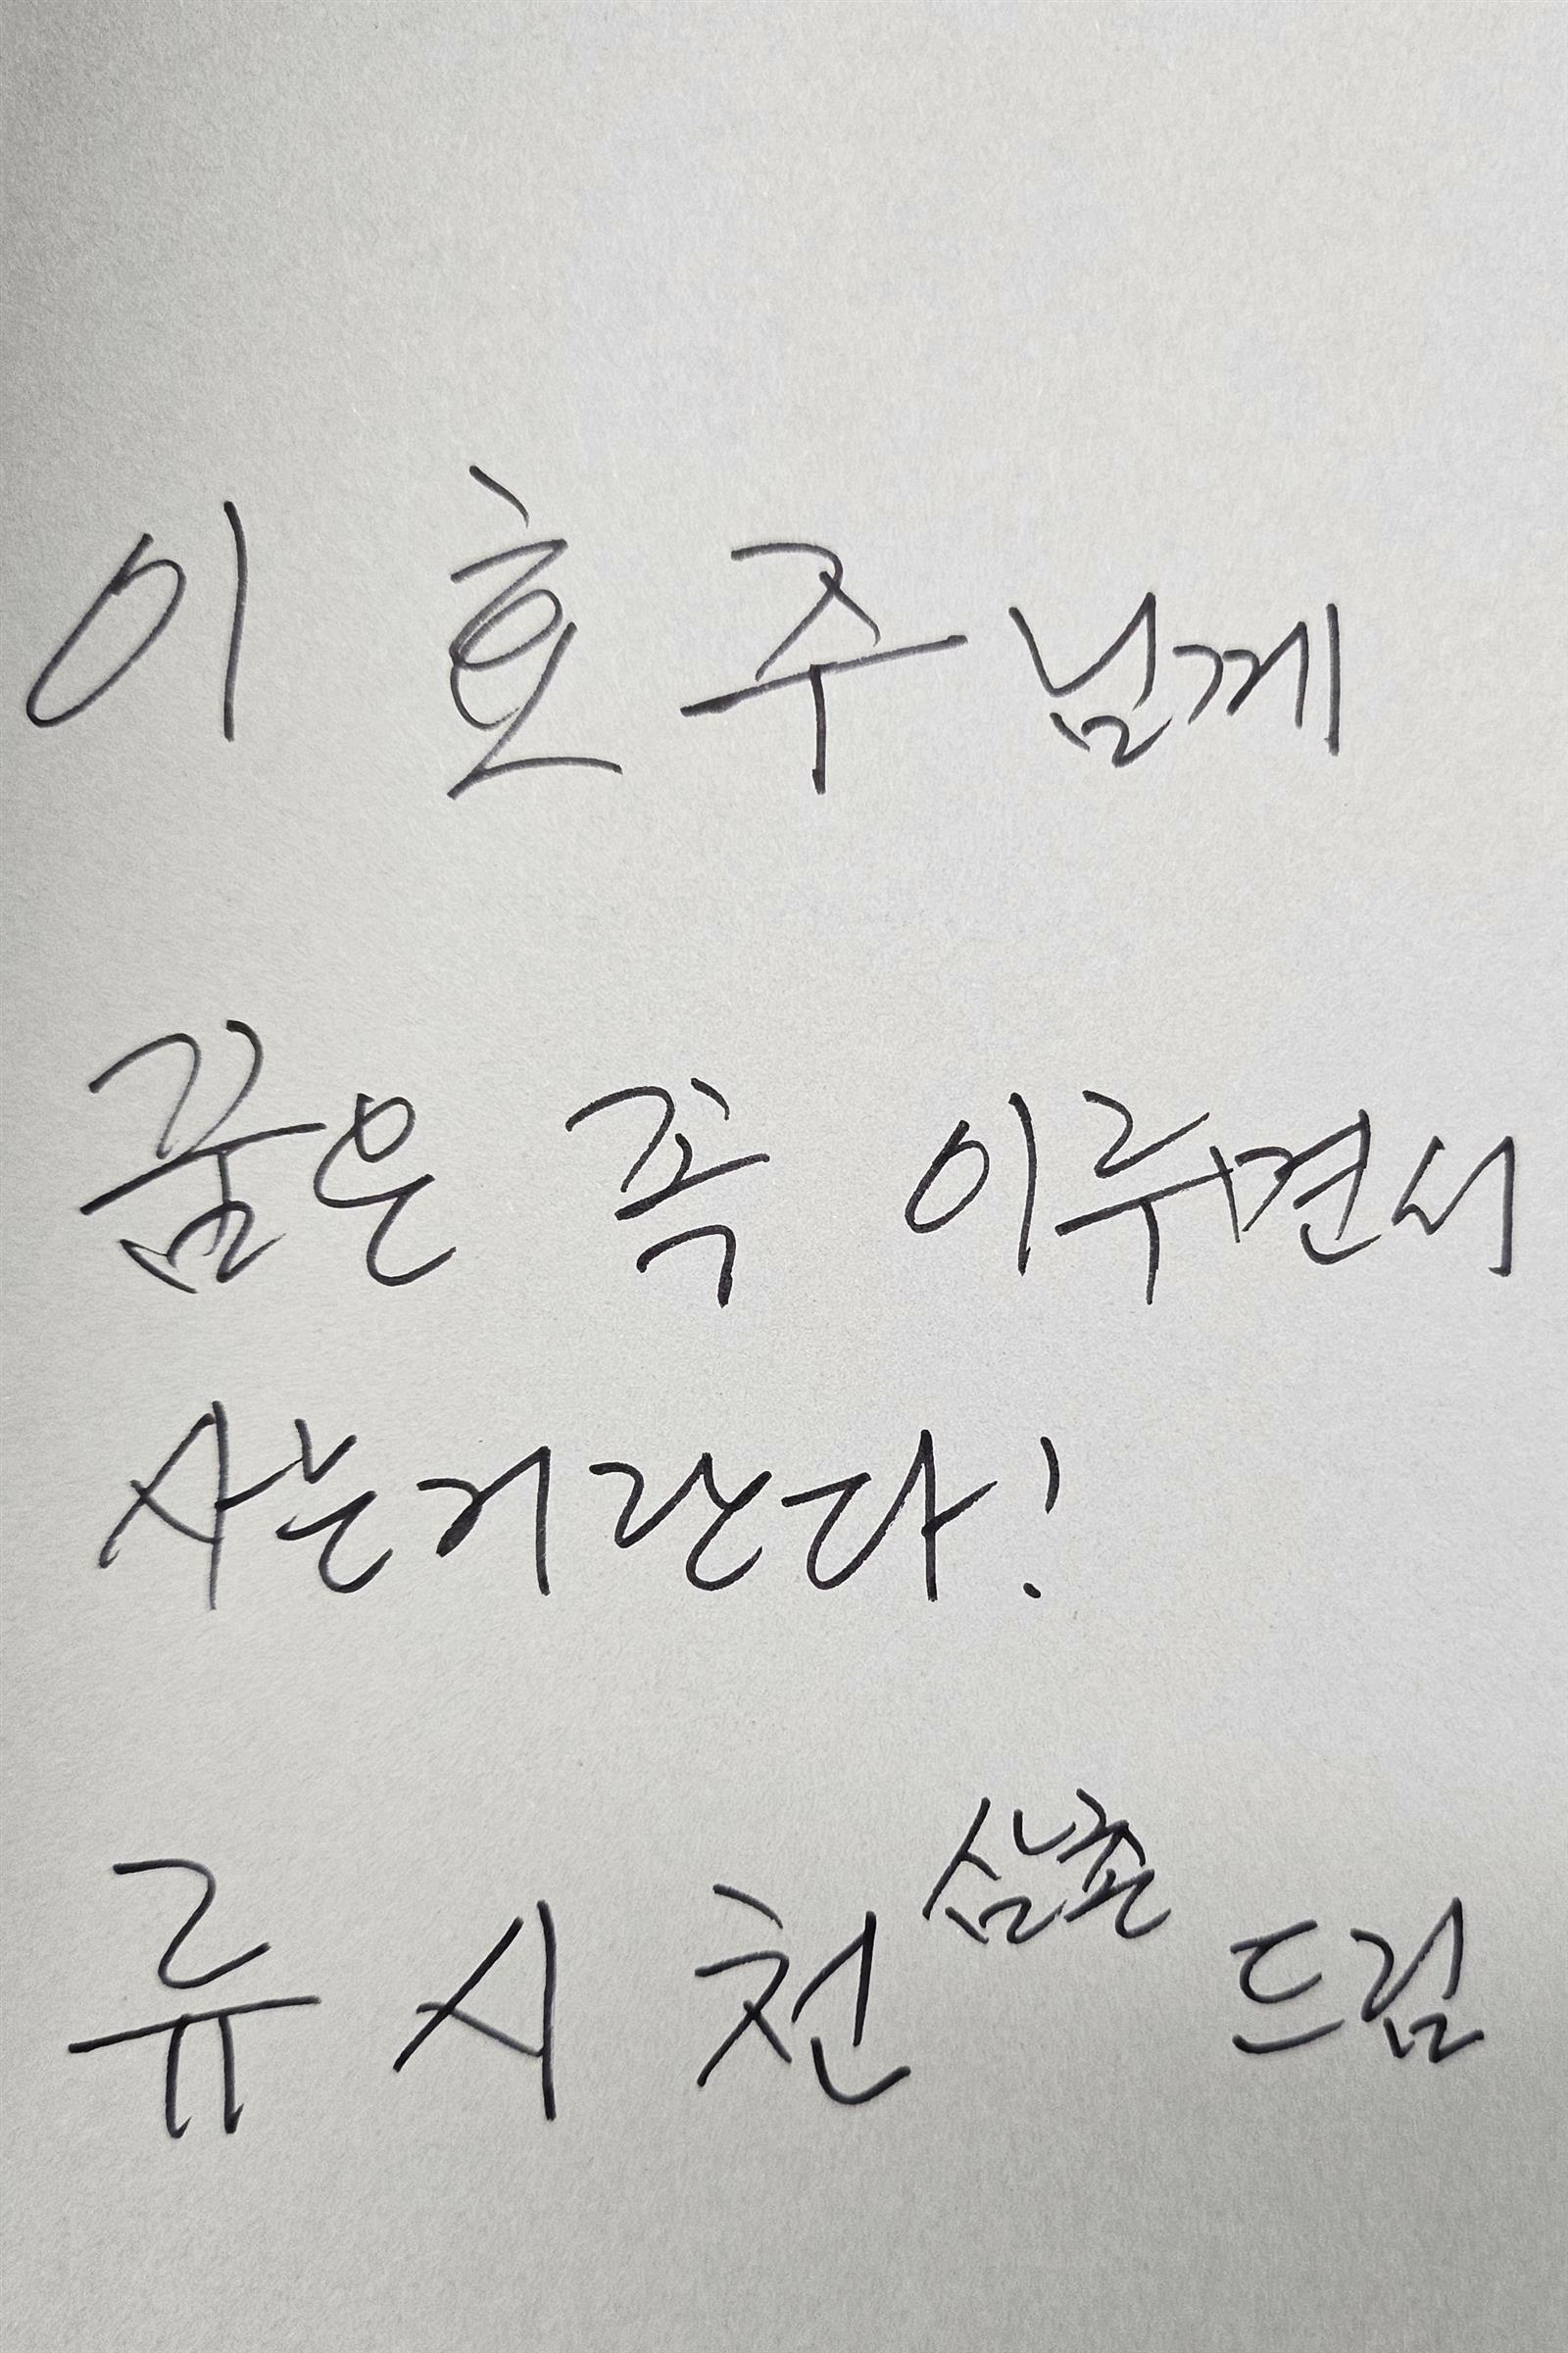 이호주님께
꿈은 꼭 이루면서
사는거란다!
류시천 삼촌 드림